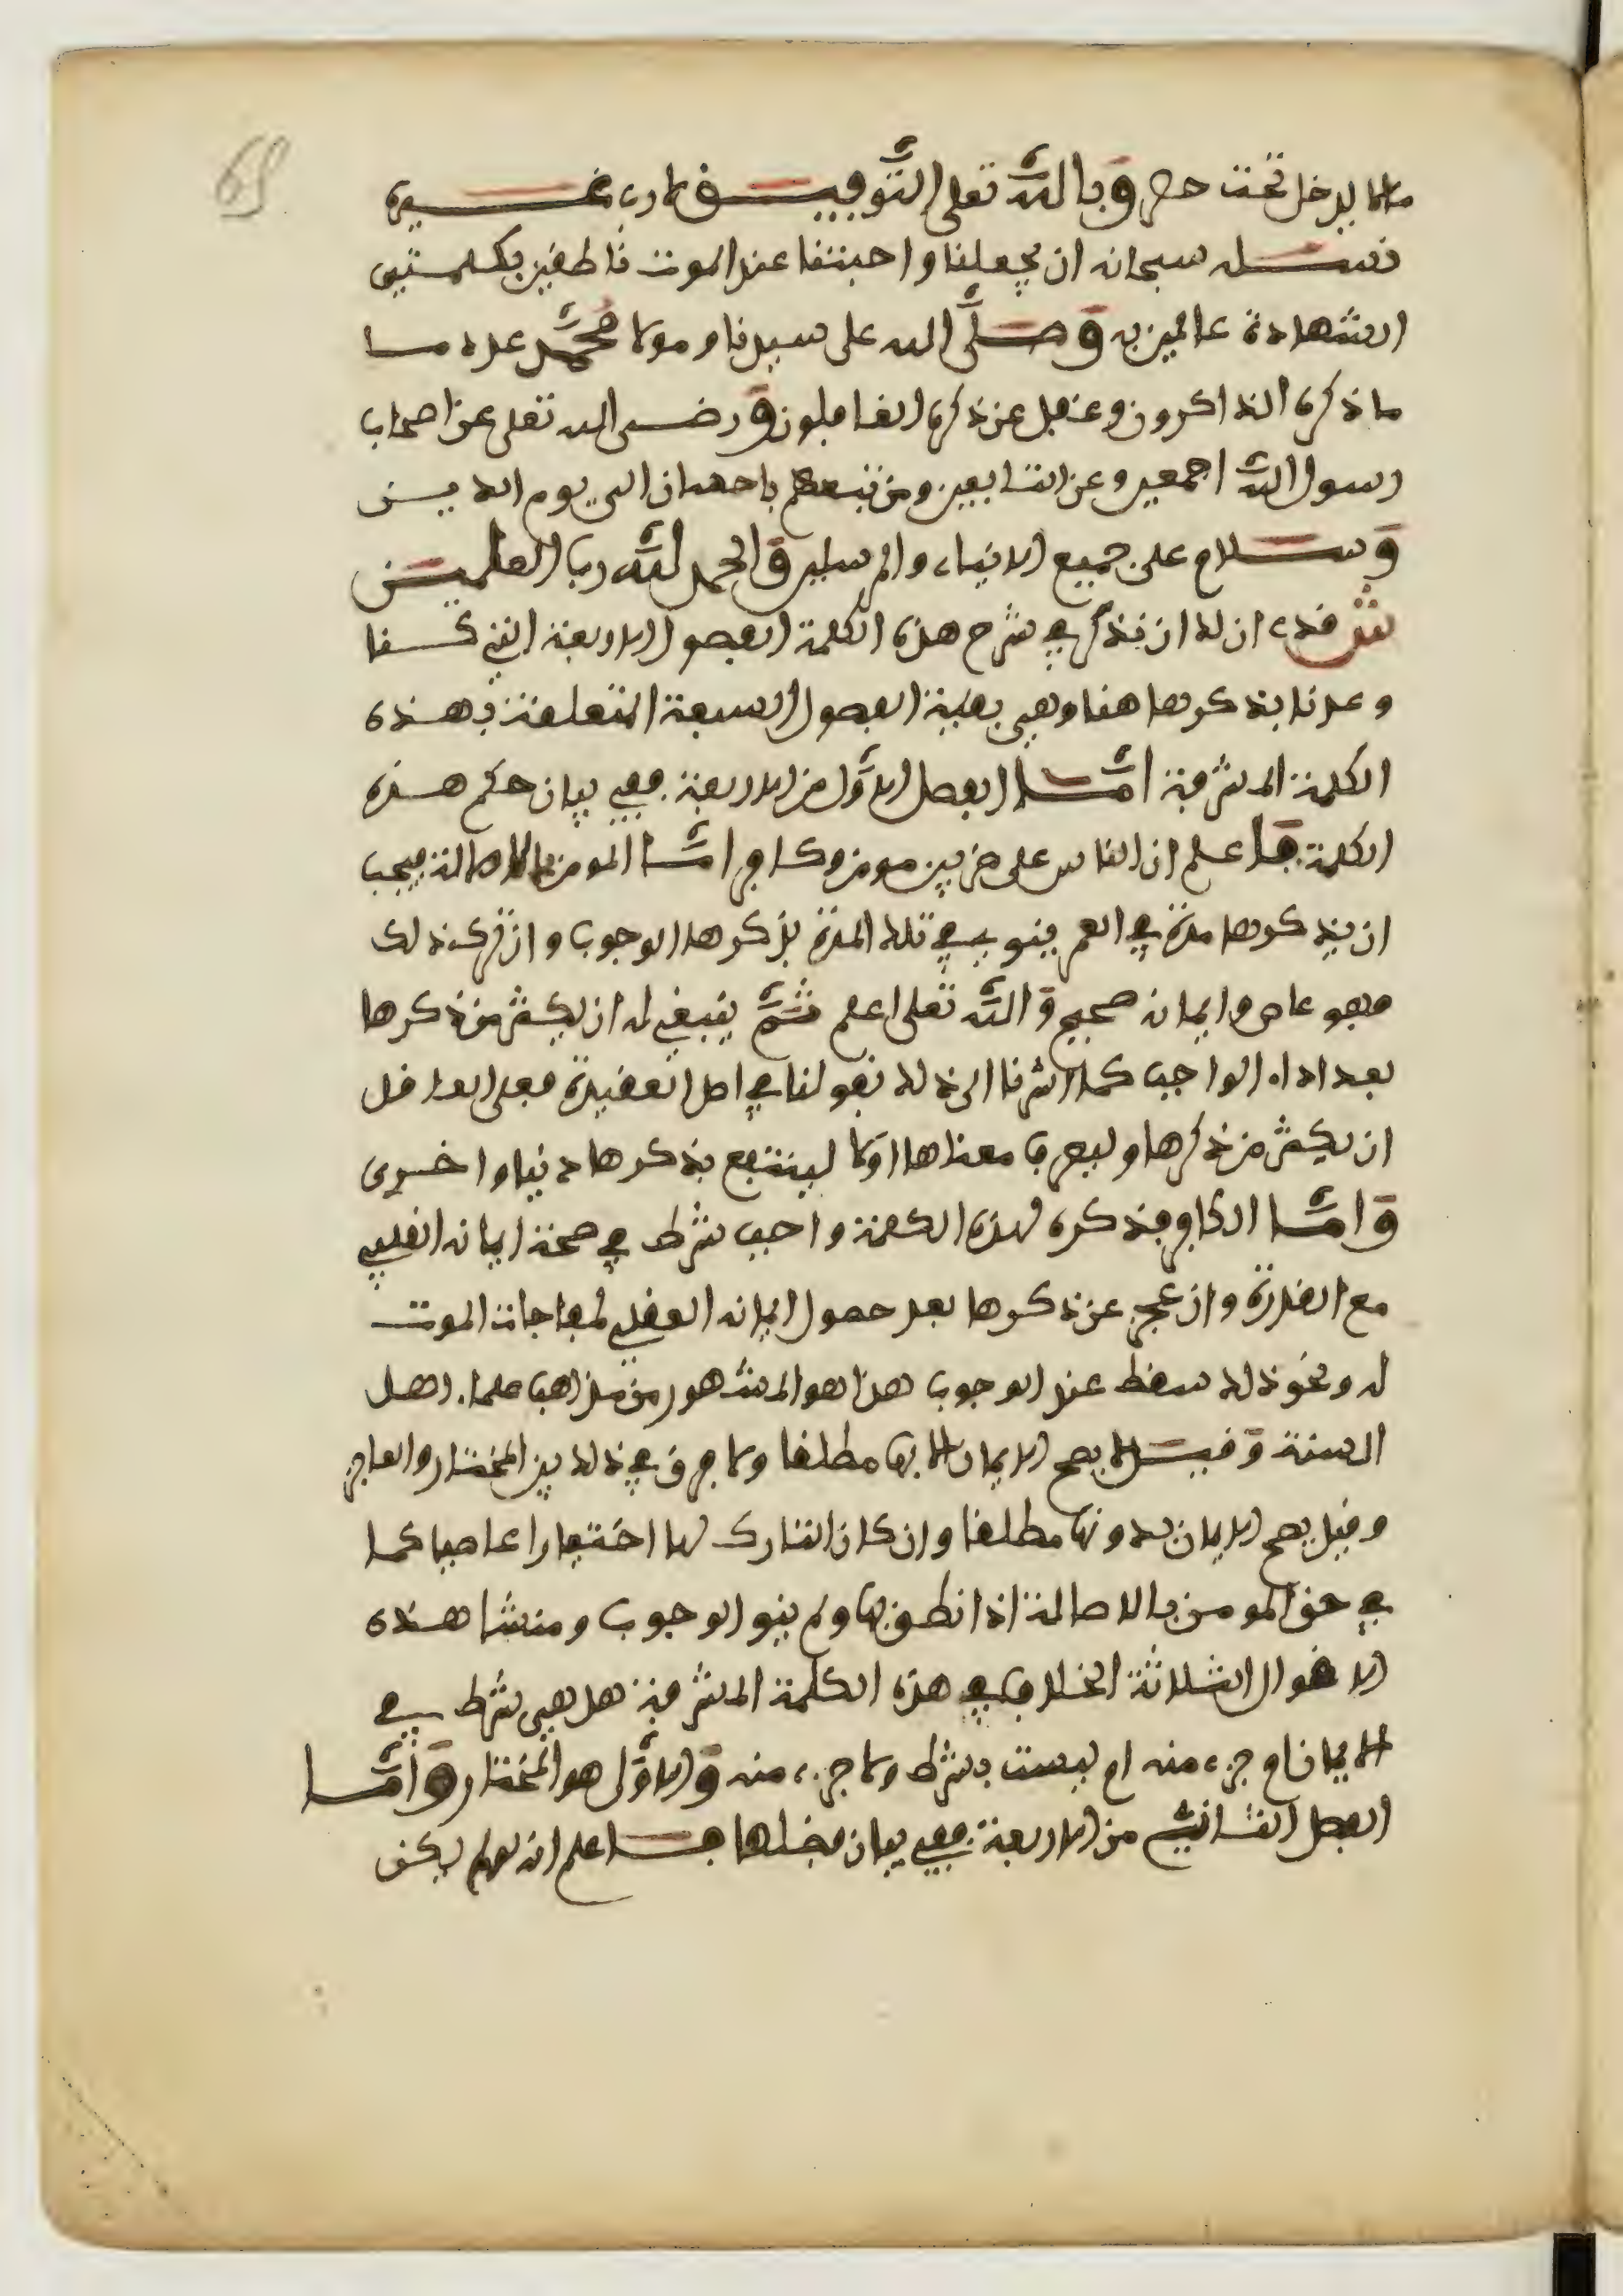 69
ما لا يدخل تحت حصر وبالله تعلى التوفيق لا رب غيره
نسئله سبحانه ان يجعلنا واحبتنا عند الموت ناطقين بكلمتي
الشهادة عالمين به وصلى الله على سيدنا ومولانا محمد عدد ما
ما ذكره الذاكرون وغفل عن ذكره الغافلون ورضى الله تعلى عن اصحاب
رسول الله اجمعين وعن التابعين ومن تبعهم باحسان الى يوم الدين
وسلام على جميع الانبياء والمرسلين والحمد لله رب العلمين
ش قد ان له ان نذكر في شرح هذه الكلمة الفصول الاربعة التي كنا
وعدنا بذكرها هنا وهي بقية الفصول السبعة المتعلقة بهذه
الكلمة المشرفة اما الفصل الاول من الاربعة ففي بيان حكم هذه
الكلمة فاعلم ان الناس على ضربين مومن وكافر اما المومن بالاصالة فيجب
ان يذكرها مرة في العمر ينوي في تلك المرة بذكرها الوجوب وان ترك ذلك
فهو عاص وايمانه صحيح والله تعلى اعلم ثم ينبغي له ان يكثر من ذكرها
بعد اداء الواجب كما اشرنا الى ذلك بقولنا في اصل العقيدة فعلى العاقل
ان يكثر من ذكرها وليعرف معناها اولا لينتفع بذكرها دنيا واخرى
واما الكافر فذكره لهذه الكلمة واجب شرط في صحة ايمانه القلبي
مع القدرة وان عجز عن ذكرها بعد حصول ايمانه القلبي لمفاجات الموت
له ونحو ذلك سقط عنه الوجوب هذا هو المشهور من مذاهب علماء اهل
السنة وقيل لا يصح الايمان الا بها مطلقا ولا فرق في ذلك بين المختار والعاجز
وقيل يصح الايمان بدونها مطلقا وان كان التارك لها اختيارا عاصيا كما
في حق المومن بالاصالة اذا نطق بها ولم ينو الوجوب ومنشا هذه
الاقوال الثلاثة الخلاف في هذه الكلمة المشرفة هل هي شرط في
الايمان او جزء منه او ليست بشرط ولا جزء منه والاول هو المختار واما
الفصل الثاني من الاربعة ففي بيان فضلها فاعلم انه لو لم يكن